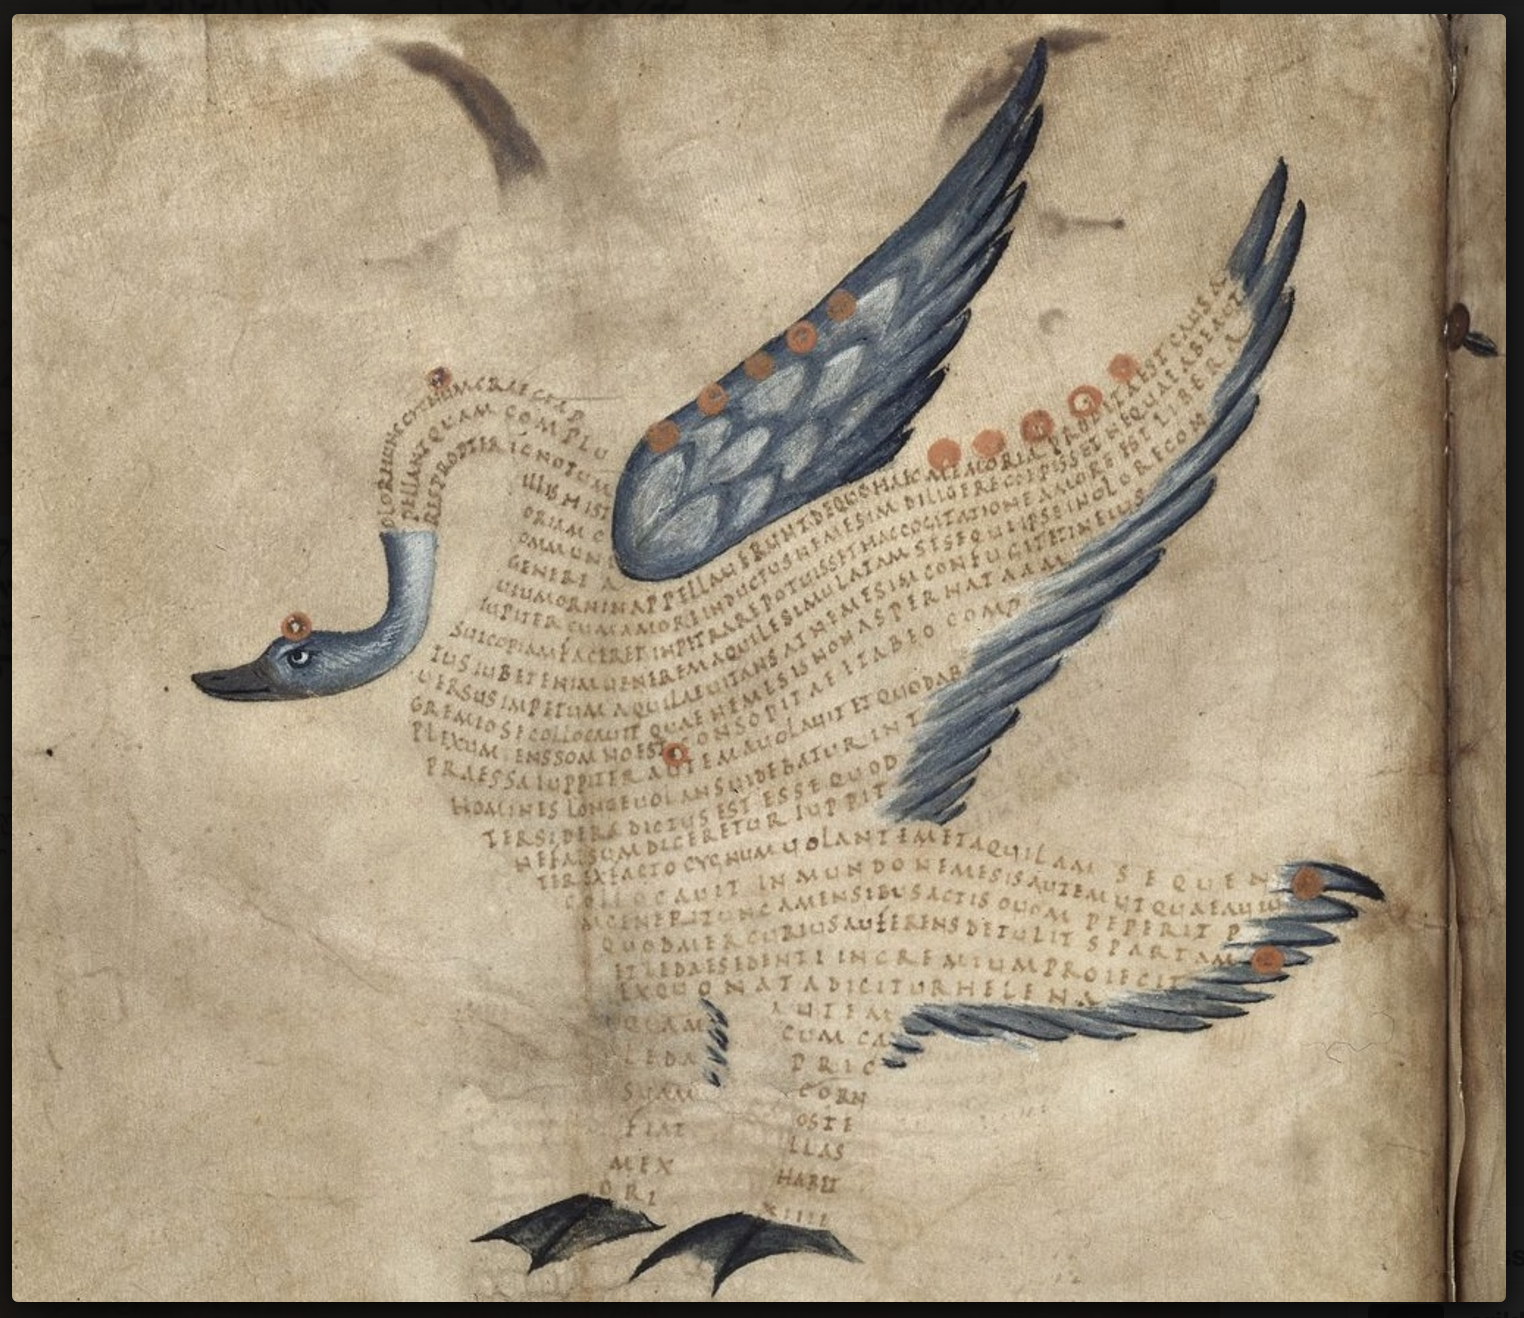 OLORHUNCCYCNUMCRAECI
PELLANTQUAM COMPLU
RESPROPTER IGNOTUM
ILLIS HIST
ORIAM C
OMMUNI
GENERE A
UIUMORNINAPPELLAUERUNTDEQUOHAEC MEMORIA PRODITAEST CAUSA
IUPITER CUMAMOREINDUCTUSNEMESIM DILIGERECOEPISSETNEQUEABEAUT
SUICOPIAMFACERETIMPETRAREPOTUISSETHACCOGITATIONEAMOREEST LIBERA
TUSIUBETENIMUENEREMAQUILESIMULATAMSESEQUIIPSEINOLORECON
UERSUSIMPETUMAQUILAEUITANSATNEMESIMCONFUGITETINEIUS
GREMIOSECOLLOCAUIT QUAENEMESISNONASPERNATAAM
PLEXUMTENSSOMNOEST CONSOPITAETTABEO COMP
PRAESSAIUPPITER AUTEMAUOLAUIT ET QUODAB
HOMINES LONGEUOLANSUIDEBATURINT
TERSIDERA DICTUS EST ESSEQUOD
NEFALSUMDICERETUR IUPPIT
TEREXFACTO CYGNUMUOLANTEMETAQUILAM SEQUEN
COLLOCAUIT IN MUNDO NEMESISAUTEMUTQUAEAUIU
MGENERITUNCAMENSIBUSACTIS OUOM PEPERIT
QUODMERCURIUSAUFERENSDETULIT SPARTAM
ETLEDAESEDENTI INGREMIUMPROIECIT
EXQUO NATADICITURHELENA
QUAM
LEDA
SUAM
FIAT
MEX
ORI
AUTEM
CUM CA
PRIC
CORN
OSTE
LLAS
HABET
XIIII